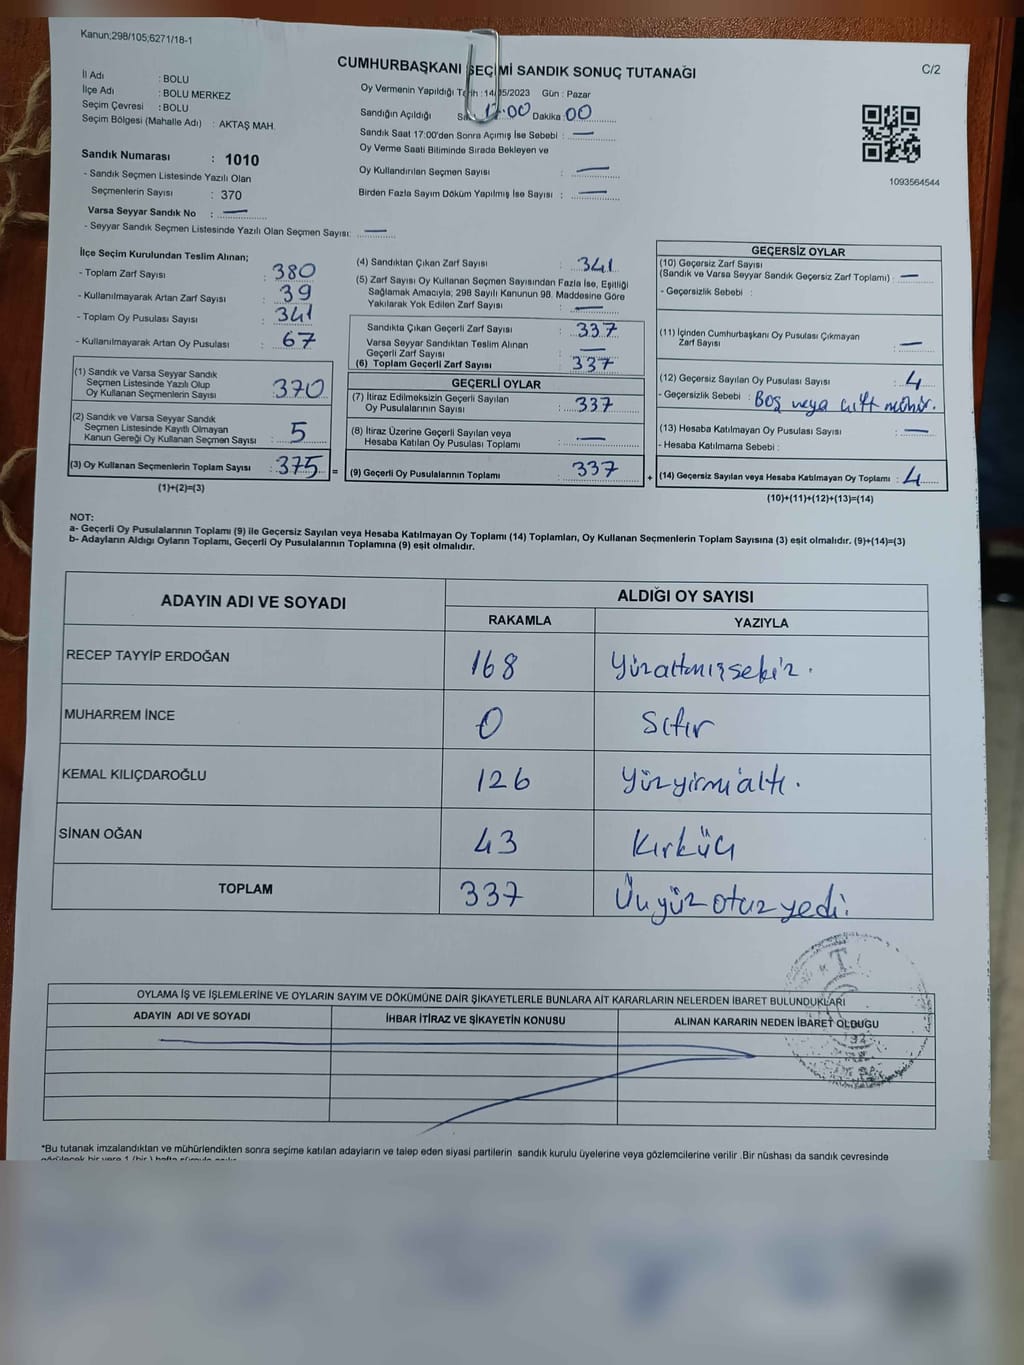 Kanun;298/105;6271/18-1
C/2
CUMHURBAŞKANI SEÇİMİ SANDIK SONUÇ TUTANAĞI
İl Adı : BOLU
İlçe Adı : BOLU MERKEZ
Seçim Çevresi : BOLU
Seçim Bölgesi (Mahalle Adı) : AKTAŞ MAH.
Sandık Numarası : 1010
- Sandık Seçmen Listesinde Yazılı Olan
Seçmenlerin Sayısı : 370
Varsa Seyyar Sandık No : —
- Seyyar Sandık Seçmen Listesinde Yazılı Olan Seçmen Sayısı: —
Oy Vermenin Yapıldığı Tarih :14/05/2023 Gün : Pazar
Sandığın Açıldığı Saat 17:00 Dakika :00
Sandık Saat 17:00'den Sonra Açımış İse Sebebi : —
Oy Verme Saati Bitiminde Sırada Bekleyen ve
Oy Kullandırılan Seçmen Sayısı : —
Birden Fazla Sayım Döküm Yapılmış İse Sayısı : —
1093564544
İlçe Seçim Kurulundan Teslim Alınan;
- Toplam Zarf Sayısı : 380
- Kullanılmayarak Artan Zarf Sayısı : 39
- Toplam Oy Pusulası Sayısı : 341
- Kullanılmayarak Artan Oy Pusulası : 67
(1) Sandık ve Varsa Seyyar Sandık
Seçmen Listesinde Yazılı Olup
Oy Kullanan Seçmenlerin Sayısı : 370
(2) Sandık ve Varsa Seyyar Sandık
Seçmen Listesinde Kayıtlı Olmayan
Kanun Gereği Oy Kullanan Seçmen Sayısı : 5
(3) Oy Kullanan Seçmenlerin Toplam Sayısı : 375 =
(1)+(2)=(3)
(4) Sandıktan Çıkan Zarf Sayısı : 341
(5) Zarf Sayısı Oy Kullanan Seçmen Sayısından Fazla İse, Eşitliği
Sağlamak Amacıyla, 298 Sayılı Kanunun 98. Maddesine Göre
Yakılarak Yok Edilen Zarf Sayısı : —
Sandıkta Çıkan Geçerli Zarf Sayısı : 337
Varsa Seyyar Sandıktan Teslim Alınan
Geçerli Zarf Sayısı : —
(6) Toplam Geçerli Zarf Sayısı : 337
GEÇERLİ OYLAR
(7) İtiraz Edilmeksizin Geçerli Sayılan
Oy Pusulalarının Sayısı : 337
(8) İtiraz Üzerine Geçerli Sayılan veya
Hesaba Katılan Oy Pusulası Toplamı : —
(9) Geçerli Oy Pusulalarının Toplamı : 337 +
GEÇERSİZ OYLAR
(10) Geçersiz Zarf Sayısı
(Sandık ve Varsa Seyyar Sandık Geçersiz Zarf Toplamı) : —
- Geçersizlik Sebebi :
(11) İçinden Cumhurbaşkanı Oy Pusulası Çıkmayan
Zarf Sayısı : —
(12) Geçersiz Sayılan Oy Pusulası Sayısı : 4
- Geçersizlik Sebebi : Boş veya çift mühür.
(13) Hesaba Katılmayan Oy Pusulası Sayısı : —
- Hesaba Katılmama Sebebi :
(14) Geçersiz Sayılan veya Hesaba Katılmayan Oy Toplamı : 4
(10)+(11)+(12)+(13)=(14)
NOT:
a- Geçerli Oy Pusulalarının Toplamı (9) ile Geçersiz Sayılan veya Hesaba Katılmayan Oy Toplamı (14) Toplamları, Oy Kullanan Seçmenlerin Toplam Sayısına (3) eşit olmalıdır. (9)+(14)=(3)
b- Adayların Aldığı Oyların Toplamı, Geçerli Oy Pusulalarının Toplamına (9) eşit olmalıdır.
ADAYIN ADI VE SOYADI ALDIĞI OY SAYISI
RAKAMLA YAZIYLA
RECEP TAYYİP ERDOĞAN 168 Yüzaltmışsekiz.
MUHARREM İNCE 0 Sıfır
KEMAL KILIÇDAROĞLU 126 Yüzyirmialtı.
SİNAN OĞAN 43 Kırküç
TOPLAM 337 Üçyüzotuzyedi.
OYLAMA İŞ VE İŞLEMLERİNE VE OYLARIN SAYIM VE DÖKÜMÜNE DAİR ŞİKAYETLERLE BUNLARA AİT KARARLARIN NELERDEN İBARET BULUNDUKLARI
ADAYIN ADI VE SOYADI İHBAR İTİRAZ VE ŞİKAYETİN KONUSU ALINAN KARARIN NEDEN İBARET OLDUĞU
*Bu tutanak imzalandıktan ve mühürlendikten sonra seçime katılan adayların ve talep eden siyasi partilerin sandık kurulu üyelerine veya gözlemcilerine verilir .Bir nüshası da sandık çevresinde